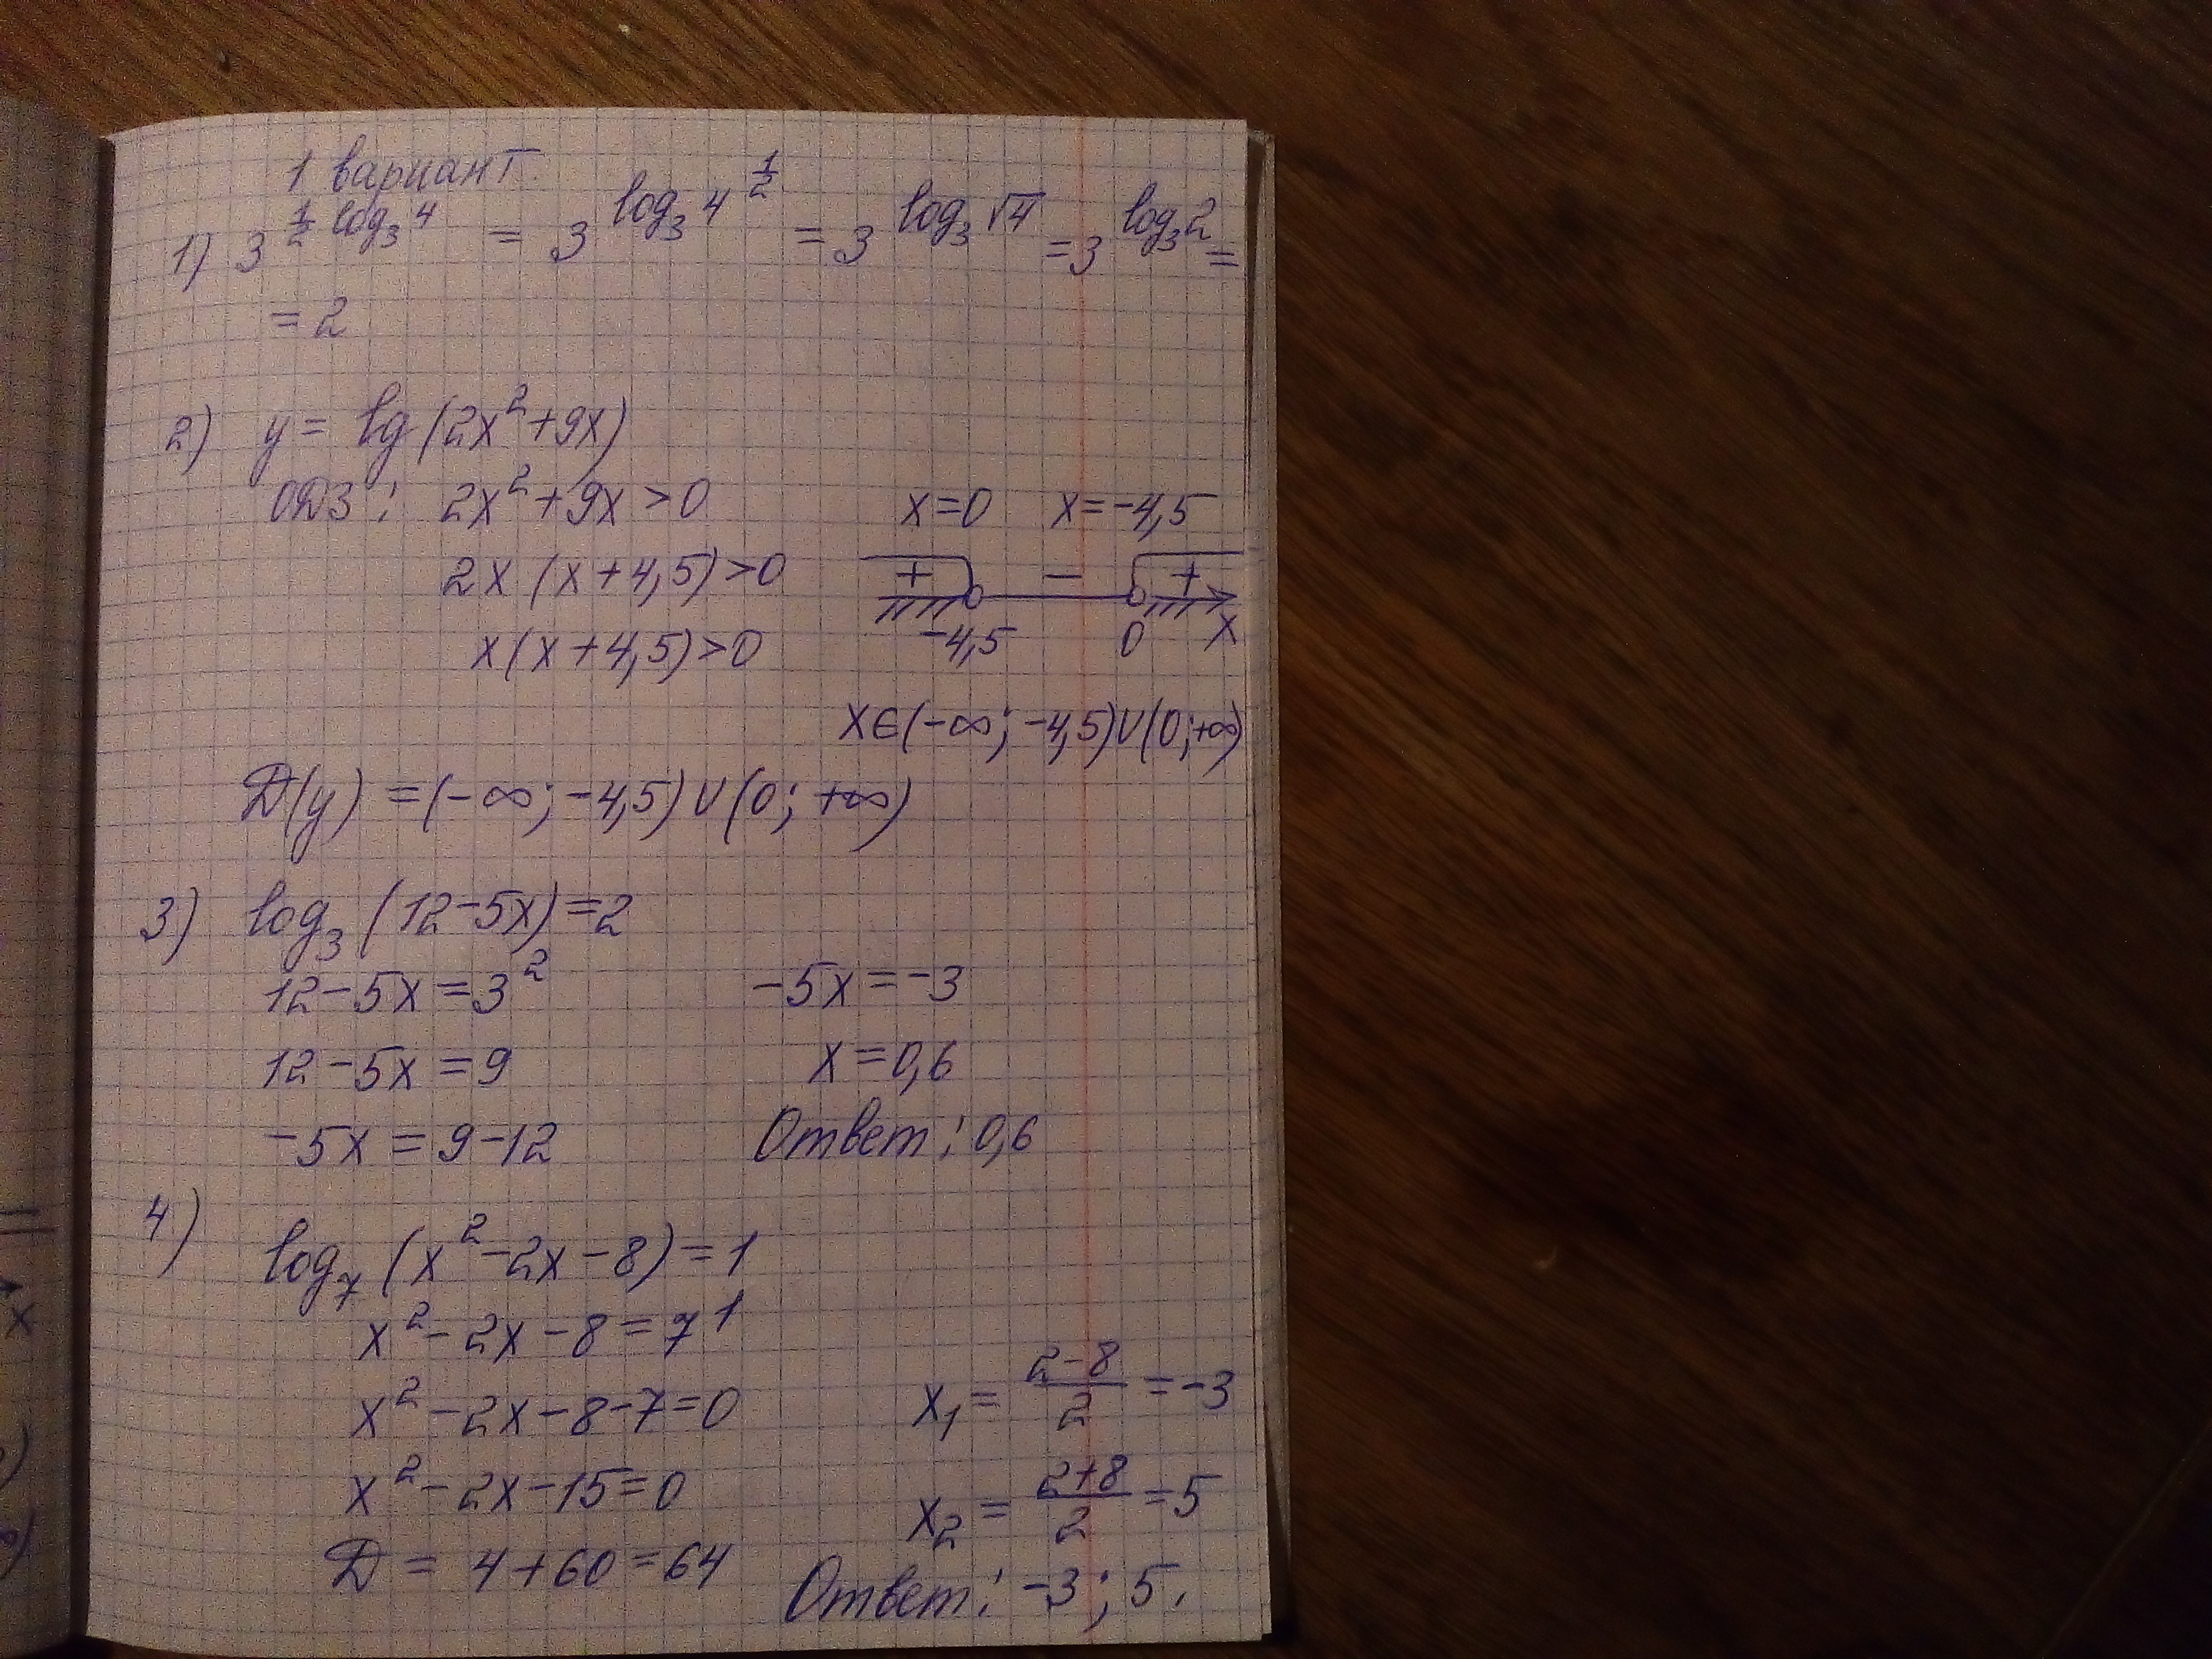 1 вариант.
1) 3^(1/2 log₃4) = 3^(log₃4^(1/2)) = 3^(log₃√4) = 3^(log₃2) =
= 2
2) y = lg (2x² + 9x)
ОДЗ: 2x² + 9x > 0
x = 0 x = -4,5
2x (x + 4,5) > 0
+ - +
-4,5 0 x
x(x + 4,5) > 0
x ∈ (-∞; -4,5) ∪ (0; +∞)
D(y) = (-∞; -4,5) ∪ (0; +∞)
3) log₃ (12 - 5x) = 2
12 - 5x = 3²
12 - 5x = 9
-5x = 9 - 12
-5x = -3
x = 0,6
Ответ: 0,6
4)
log₇ (x² - 2x - 8) = 1
x² - 2x - 8 = 7¹
x² - 2x - 8 - 7 = 0
x² - 2x - 15 = 0
D = 4 + 60 = 64
x₁ = (2 - 8)/2 = -3
x₂ = (2 + 8)/2 = 5
Ответ: -3; 5.